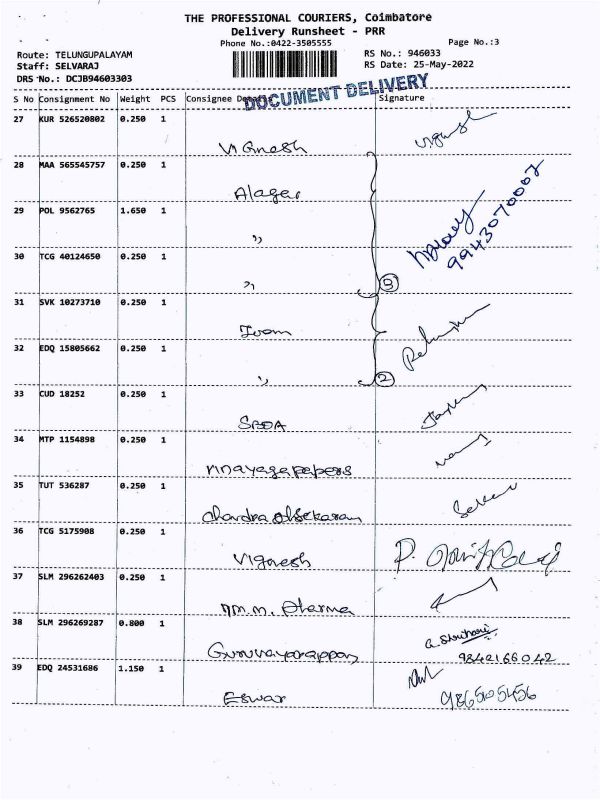 THE PROFESSIONAL COURIERS, Coimbatore
Delivery Runsheet - PRR
Phone No.:0422-3505555
Page No.:3
Route: TELUNGUPALAYAM
Staff: SELVARAJ
DRS No.: DCJB94603303
RS No.: 946033
RS Date: 25-May-2022
DOCUMENT DELIVERY
S No Consignment No Weight PCS Consignee Signature
27 KUR 526520802 0.250 1
Vignesh
28 MAA 565545757 0.250 1
Alager
29 POL 9562765 1.650 1
"
9943070002
30 TCG 40124650 0.250 1
"
3
31 SVK 10273710 0.250 1
32 EDQ 15805662 0.250 1
"
2
33 CUD 18252 0.250 1
34 MTP 1154898 0.250 1
vinayaga papers
35 TUT 536287 0.250 1
36 TCG 5175908 0.250 1
Vignesh
37 SLM 296262403 0.250 1
38 SLM 296269287 0.800 1
Guruvayorappan
9842166042
39 EDQ 24531686 1.150 1
Eswar
9865105456